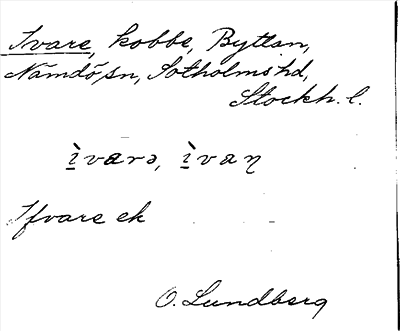 Ivare, kobbe, Byttan,
Nämdö sn, Sotholms hd,
Stockh. l.
ìvarə, ìvaɳ
Ifvare ek
O. Lundberg